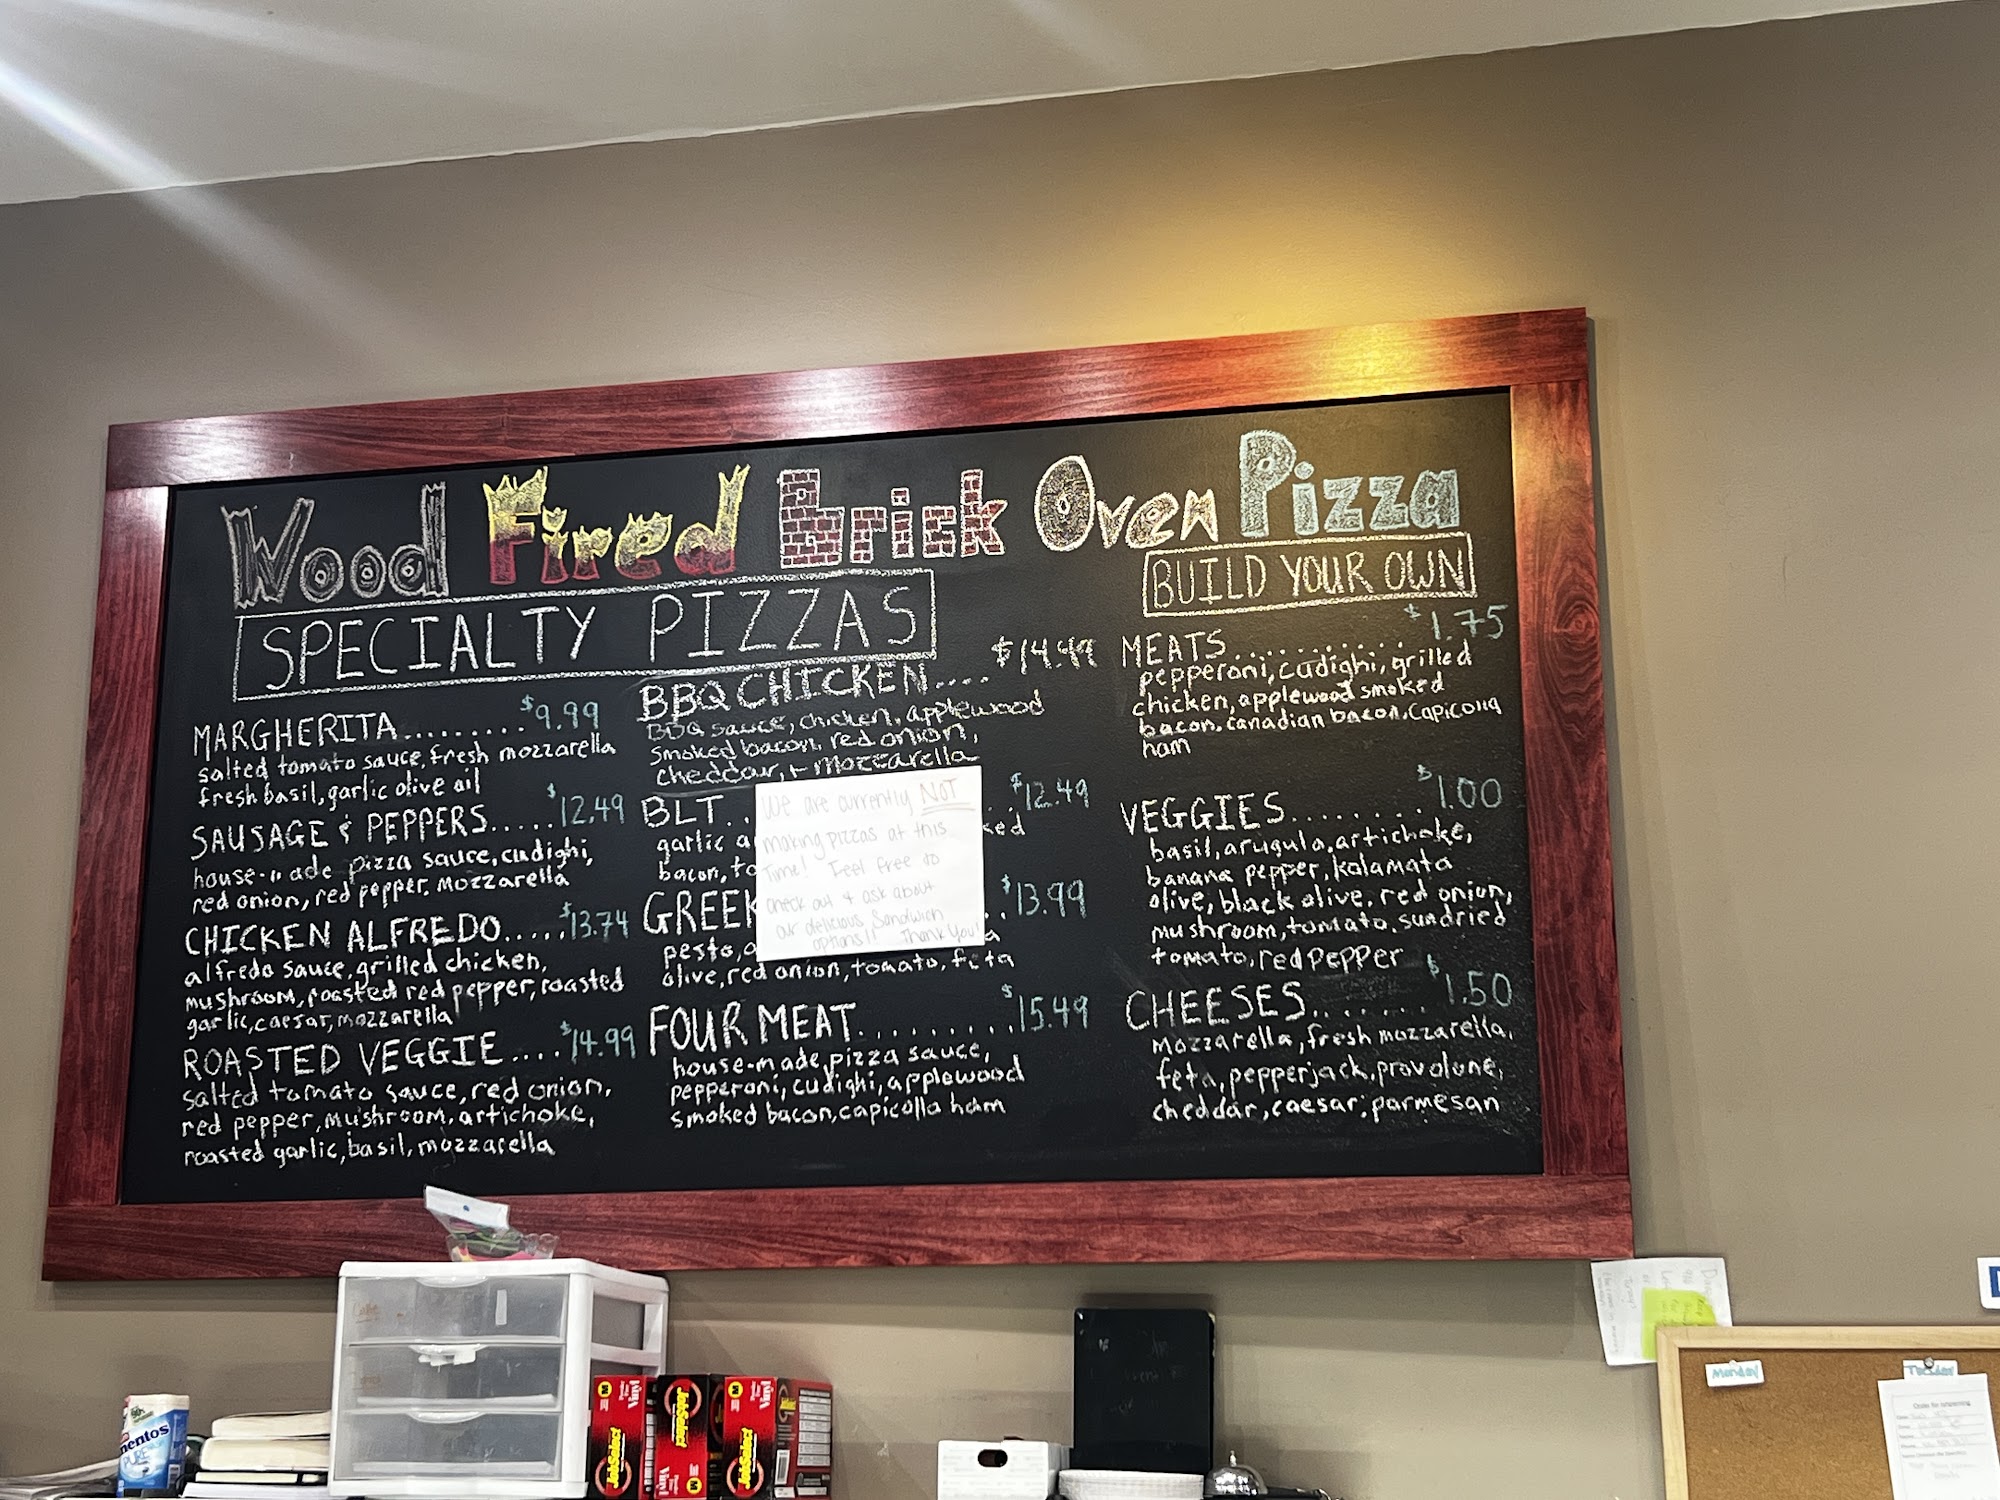 Wood Fired Brick Oven Pizza
SPECIALTY PIZZAS
MARGHERITA.........$9.99
salted tomato sauce, fresh mozzarella
fresh basil, garlic olive oil
SAUSAGE & PEPPERS.....$12.49
house-made pizza sauce, cudighi,
red onion, red pepper, mozzarella
CHICKEN ALFREDO.....$13.74
alfredo sauce, grilled chicken,
mushroom, roasted red pepper, roasted
garlic, caesar, mozzarella
ROASTED VEGGIE....$14.99
salted tomato sauce, red onion,
red pepper, mushroom, artichoke,
roasted garlic, basil, mozzarella
BBQ CHICKEN....$14.49
BBQ sauce, chicken, applewood
smoked bacon, red onion,
cheddar, + mozzarella
BLT.. $12.49
garlic
bacon,
GREEK ..$13.99
pesto,
olive, red onion, tomato, feta
FOUR MEAT.........$15.49
house-made pizza sauce,
pepperoni, cudighi, applewood
smoked bacon, capicolla ham
We are currently NOT
making pizzas at this
Time! Feel free to
check out & ask about
our delicious Sandwich
options!! Thank You!
BUILD YOUR OWN
MEATS............$1.75
pepperoni, cudighi, grilled
chicken, applewood smoked
bacon, canadian bacon, capicolla
ham
VEGGIES.........$1.00
basil, arugula, artichoke,
banana pepper, kalamata
olive, black olive, red onion,
mushroom, tomato, sundried
tomato, red pepper
CHEESES.......$1.50
mozzarella, fresh mozzarella,
feta, pepperjack, provolone,
cheddar, caesar, parmesan
mentos
PURE
Vinyl
JobSelect
JobSelect
Vinyl
JobSelect
Monday
Tuesday